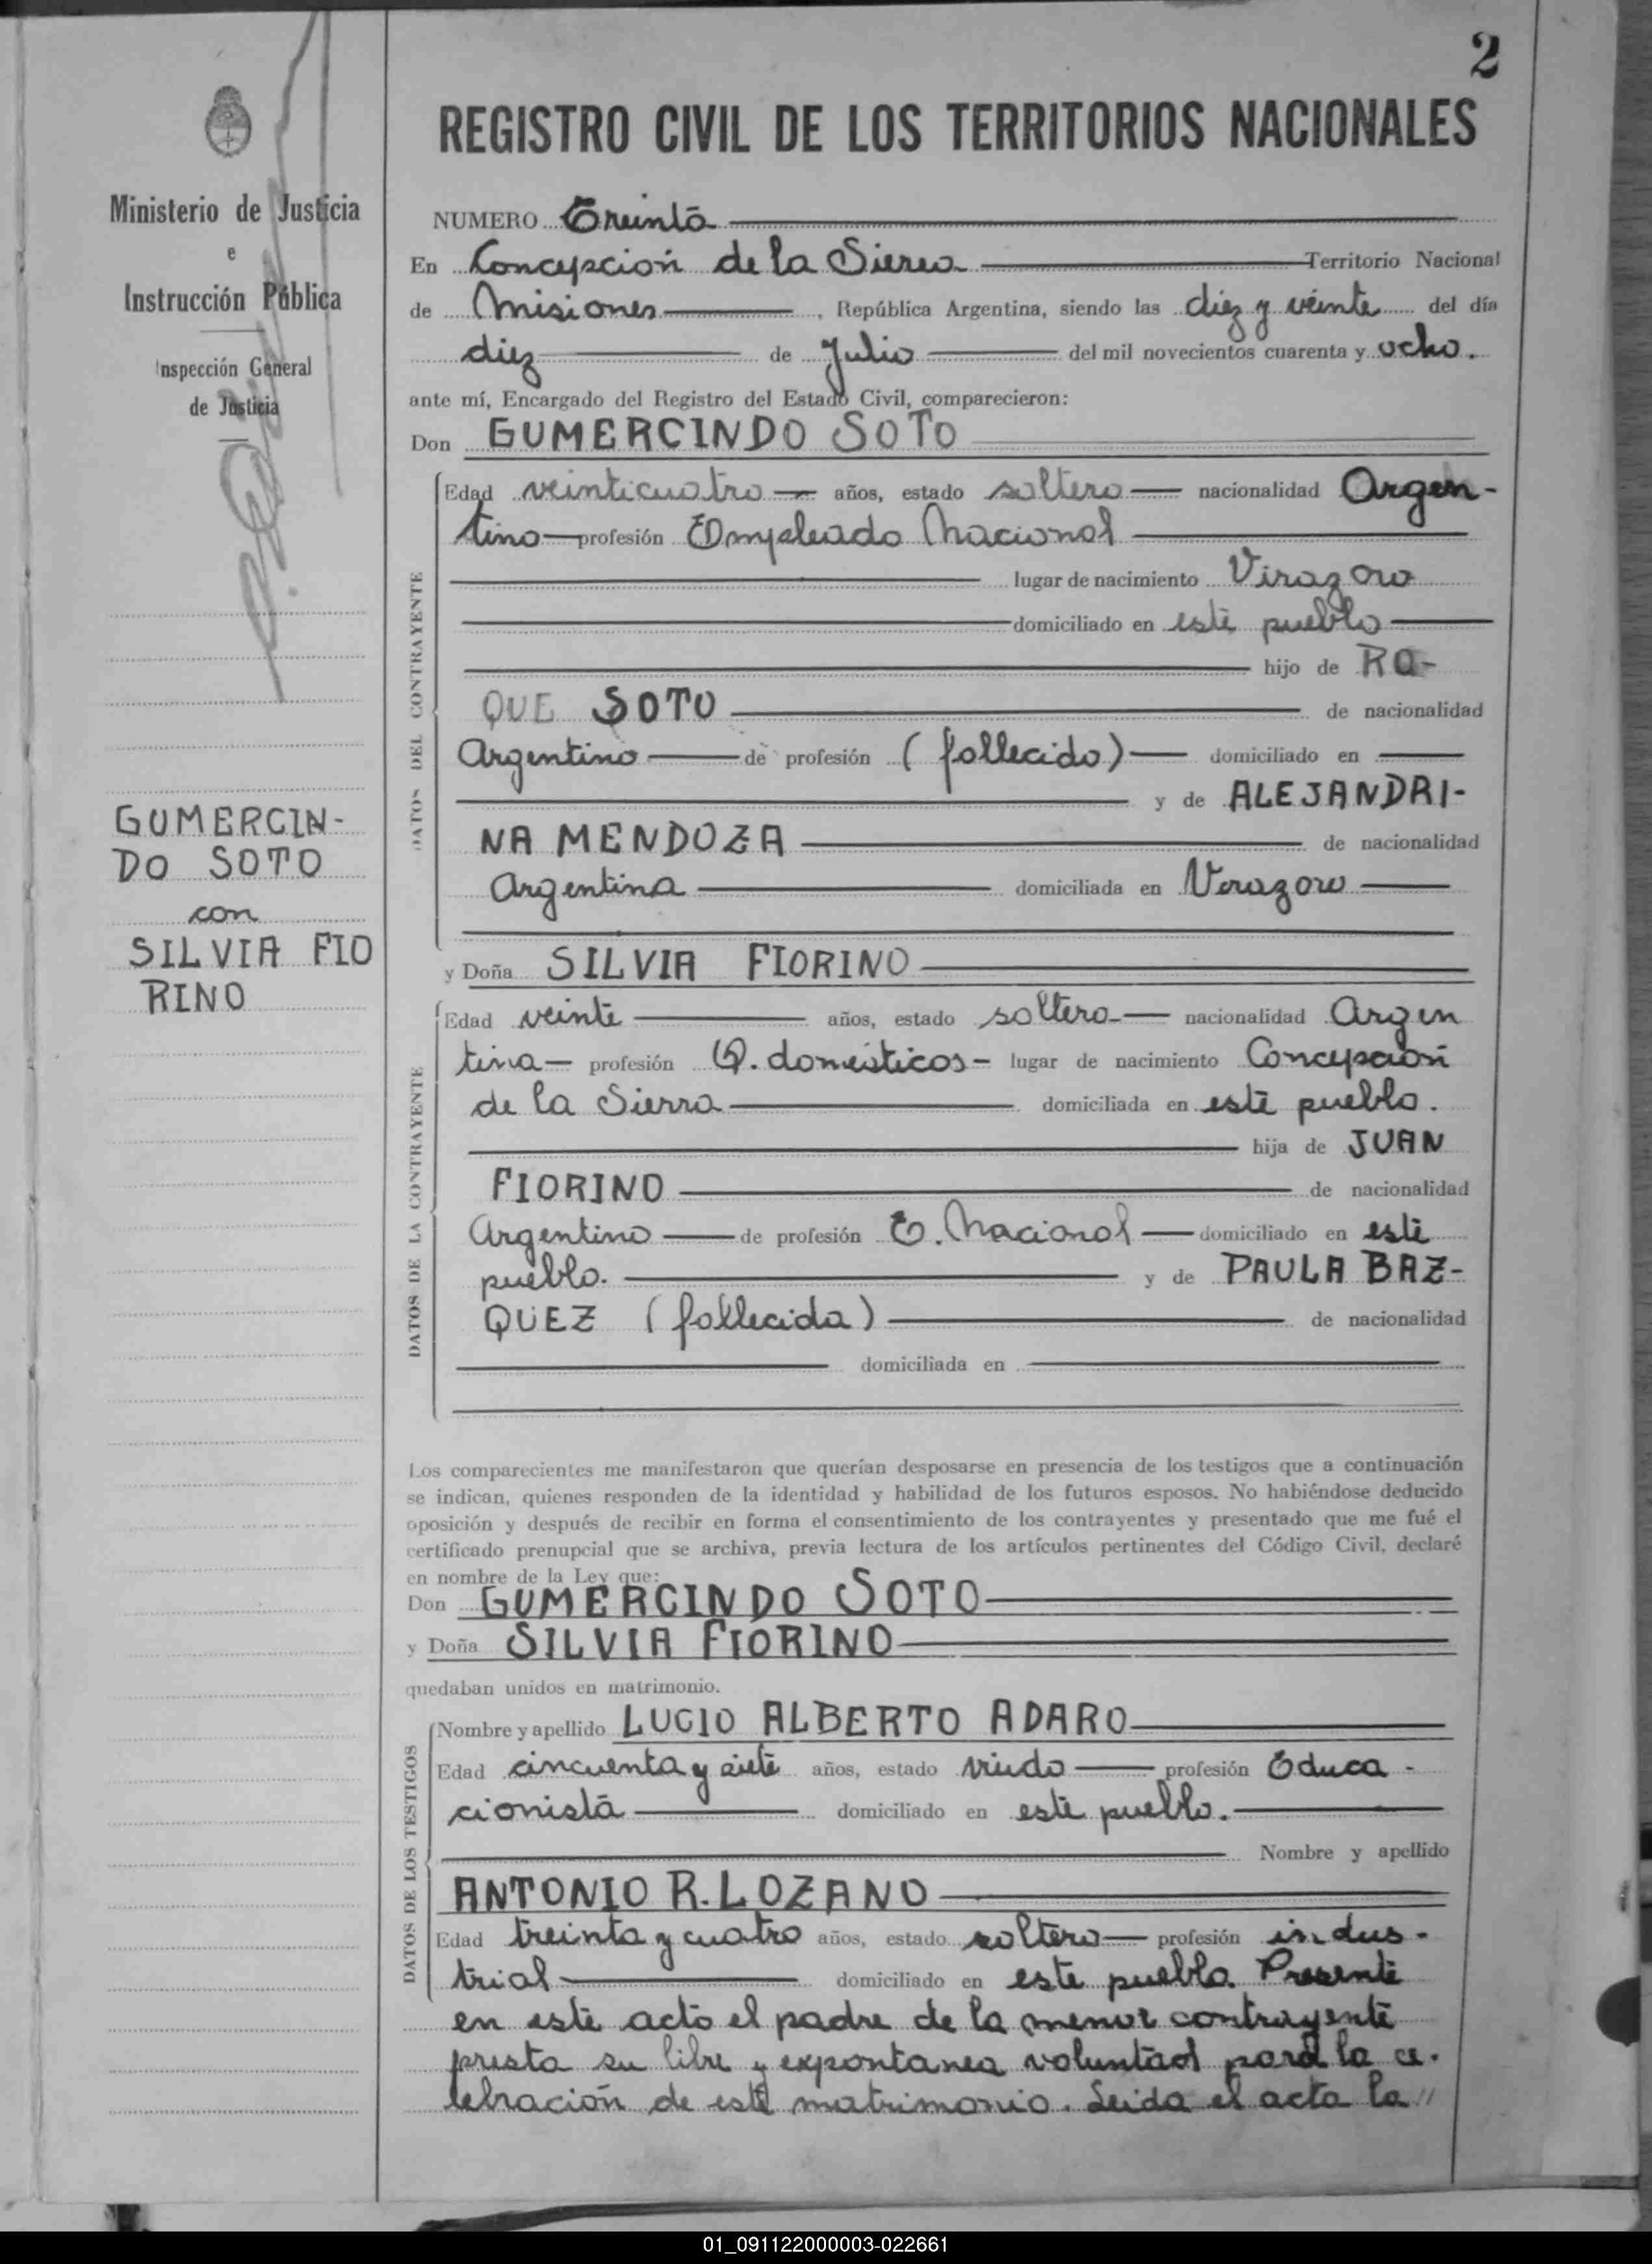 2
REGISTRO CIVIL DE LOS TERRITORIOS NACIONALES
Ministerio de Justicia
e
Instrucción Pública
Inspección General
de Justicia
GUMERCIN-
DO SOTO
con
SILVIA FIO
RINO
NUMERO Treinta
En Concepción de la Sierra Territorio Nacional
de Misiones, República Argentina, siendo las diez y veinte del día
diez de Julio del mil novecientos cuarenta y ocho.
ante mí, Encargado del Registro del Estado Civil, comparecieron:
Don GUMERCINDO SOTO
DATOS DEL CONTRAYENTE
Edad veinticuatro años, estado soltero nacionalidad Argen-
tino profesión Empleado Nacional
lugar de nacimiento Virazoro
domiciliado en este pueblo
hijo de RO-
QUE SOTO de nacionalidad
Argentino de profesión (fallecido) domiciliado en
y de ALEJANDRI-
NA MENDOZA de nacionalidad
Argentina domiciliada en Virazoro
y Doña SILVIA FIORINO
DATOS DE LA CONTRAYENTE
Edad veinte años, estado soltera nacionalidad Argen
tina profesión Q. domésticos - lugar de nacimiento Concepción
de la Sierra domiciliada en este pueblo.
hija de JUAN
FIORINO de nacionalidad
Argentino de profesión E. Nacional domiciliado en este
pueblo. y de PAULA BAZ-
QUEZ (fallecida) de nacionalidad
domiciliada en
Los comparecientes me manifestaron que querían desposarse en presencia de los testigos que a continuación
se indican, quienes responden de la identidad y habilidad de los futuros esposos. No habiéndose deducido
oposición y después de recibir en forma el consentimiento de los contrayentes y presentado que me fué el
certificado prenupcial que se archiva, previa lectura de los artículos pertinentes del Código Civil, declaré
en nombre de la Ley que:
Don GUMERCINDO SOTO
y Doña SILVIA FIORINO
quedaban unidos en matrimonio.
DATOS DE LOS TESTIGOS
Nombre y apellido LUCIO ALBERTO ADARO
Edad cincuenta y siete años, estado viudo profesión Educa-
cionista domiciliado en este pueblo.
Nombre y apellido
ANTONIO R. LOZANO
Edad treinta y cuatro años, estado soltero profesión indus-
trial domiciliado en este pueblo. Presente
en este acto el padre de la menor contrayente
presta su libre y expontanea voluntad para la ce-
lebración de este matrimonio. Leida el acta la //
01_091122000003-022661